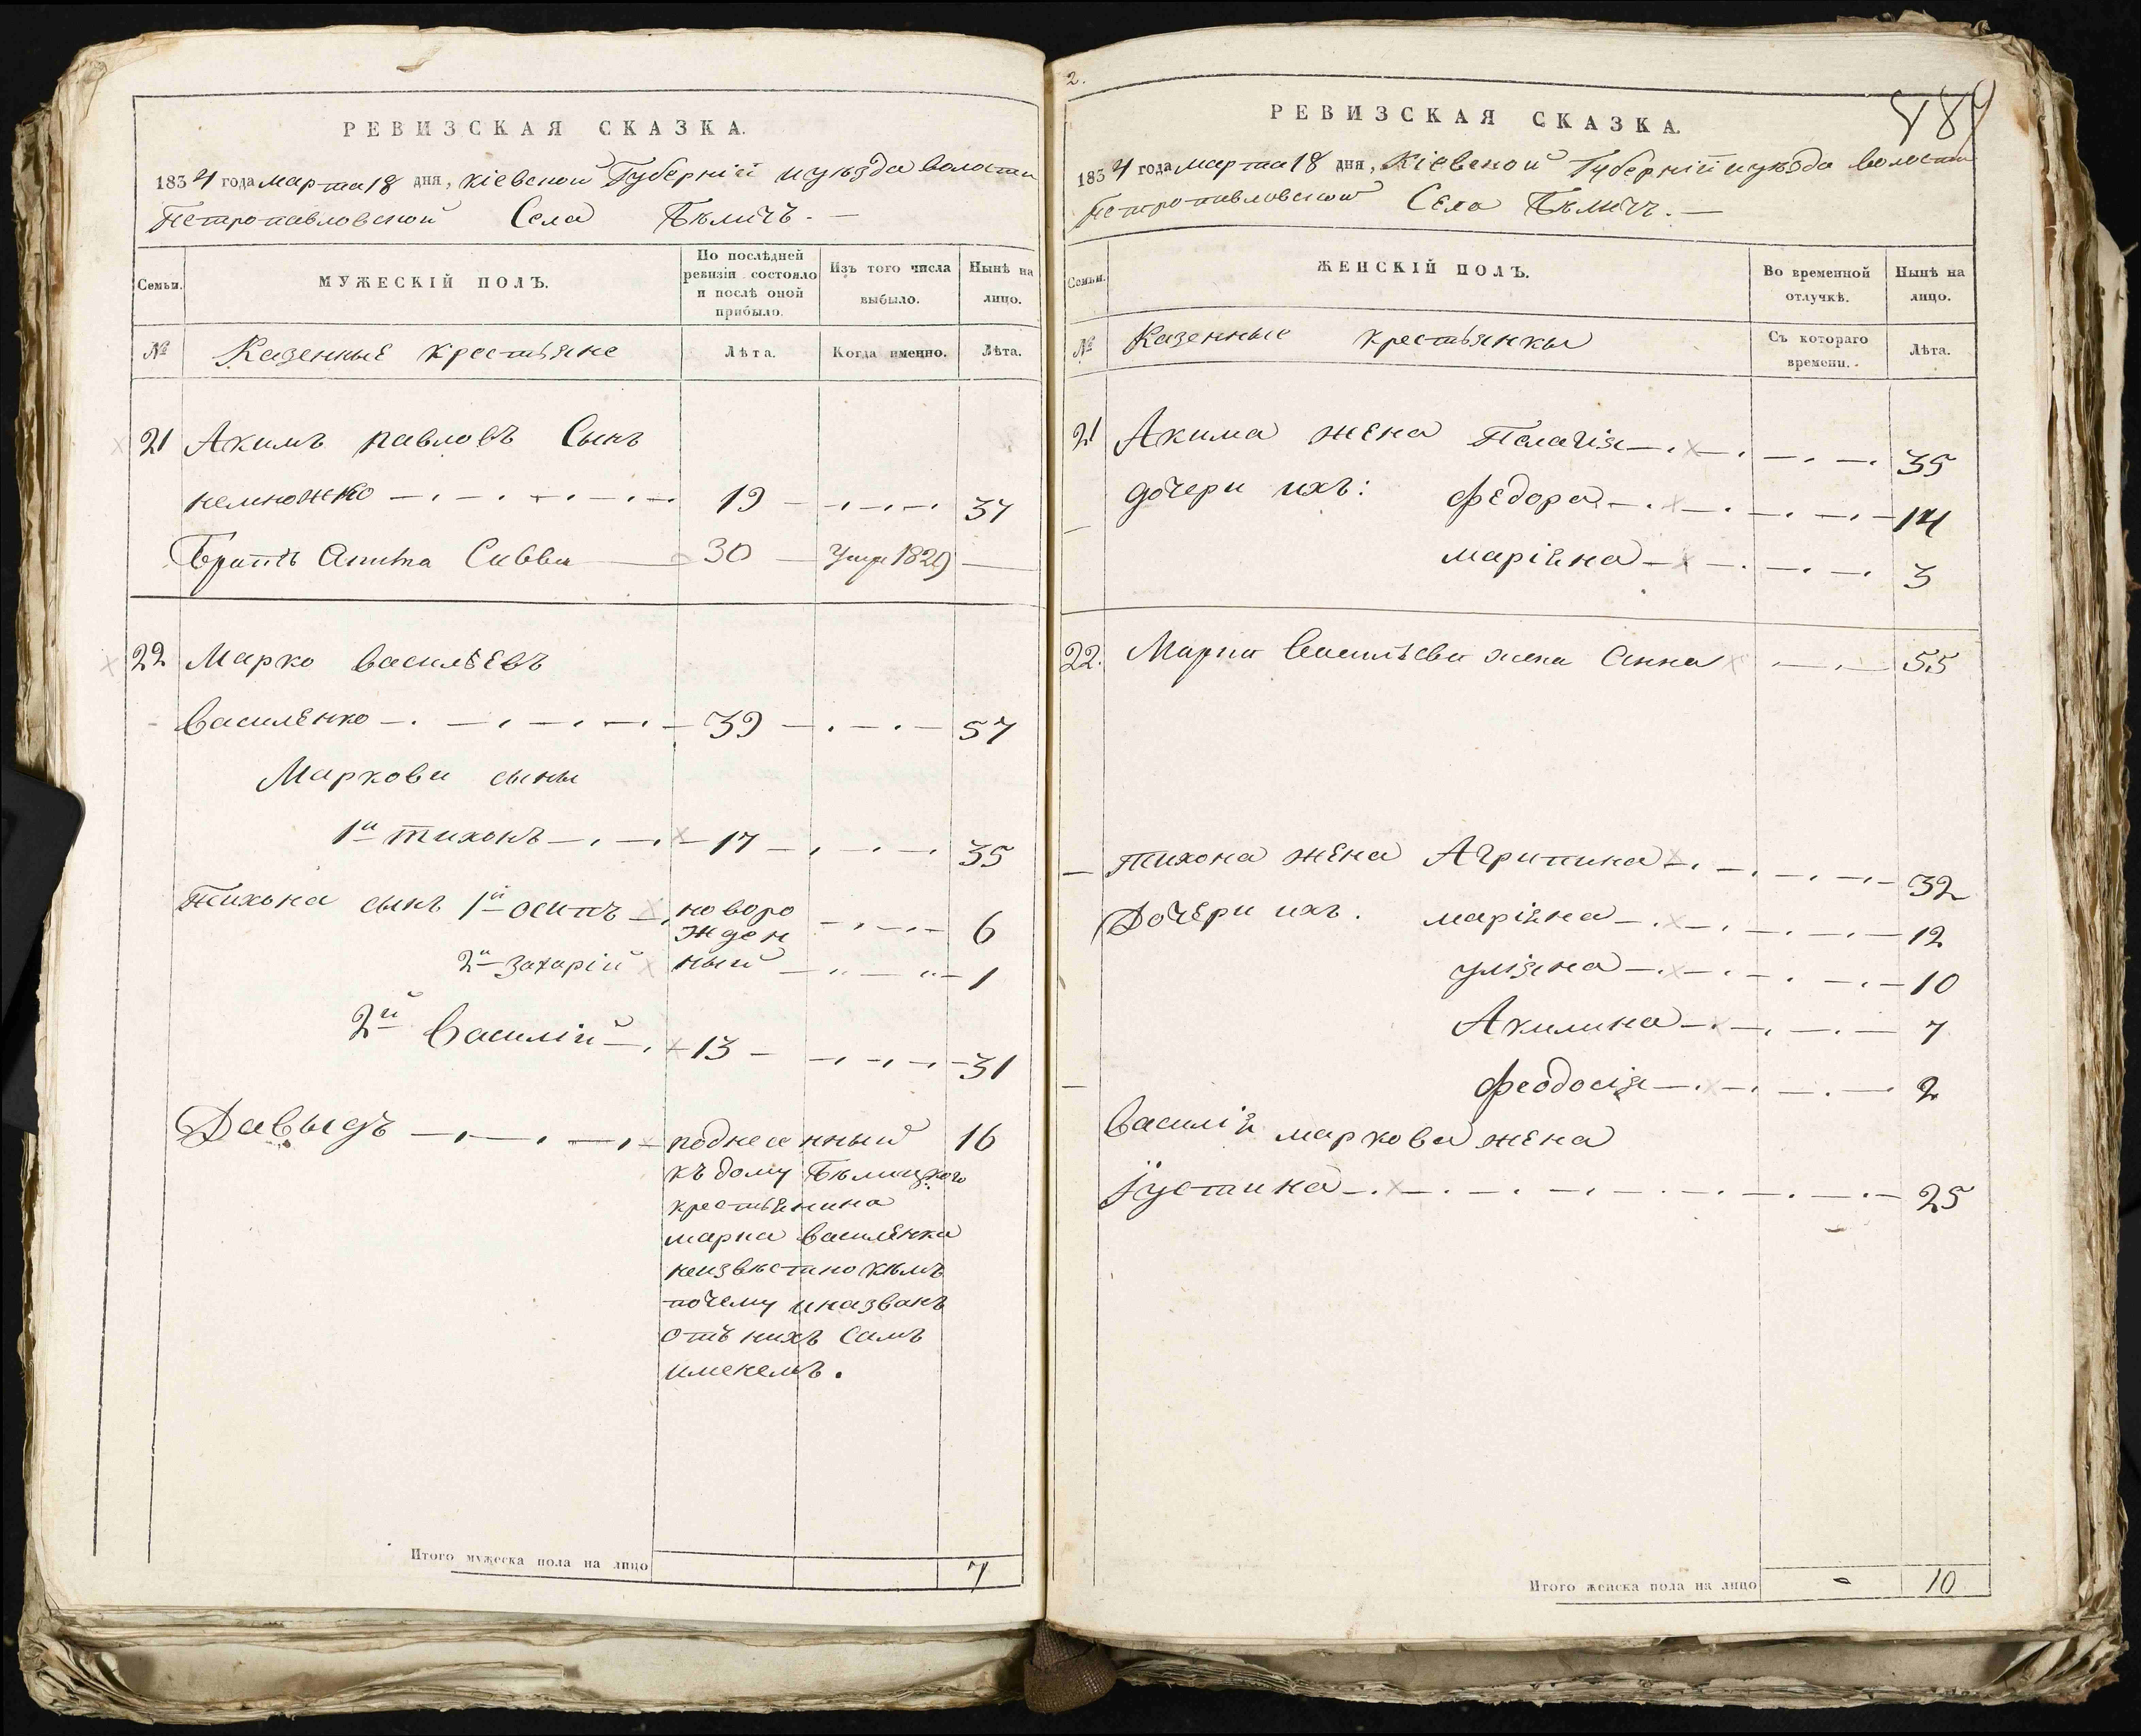 РЕВИЗСКАЯ СКАЗКА.
1834 года марта 18 дня, Кіевской Губерніи и уѣзда волости
Петропавловской Села Бѣличъ. —
Семьи.
МУЖЕСКІЙ ПОЛЪ.
По послѣдней ревизіи состояло и послѣ оной прибыло.
Изъ того числа выбыло.
Нынѣ на лицо.
№
Казенные крестьяне
Лѣта.
Когда именно.
Лѣта.
21 Акимъ павловъ Сынъ
немножко 19 37
Братъ Савва 30 Умре 1829
22 Марко васильевъ
василенко 39 57
Маркови сыны
1й тихонъ 17 35
Тихона сынъ 1й осипъ новоро
жден 6
2й захарій ный 1
2й Василій 13 31
Давыдъ поднесенный 16
къ дому Бѣлицкого
крестьянина
марка василенка
неизвѣстно кѣмъ
почему и названъ
отъ нихъ симъ
именемъ.
Итого мужеска пола на лицо 7
2.
489
РЕВИЗСКАЯ СКАЗКА.
1834 года марта 18 дня, Кіевской Губерніи и уѣзда волости
Петропавловской Села Бѣличъ. —
Семьи.
ЖЕНСКІЙ ПОЛЪ.
Во временной отлучкѣ.
Нынѣ на лицо.
№
Казенные крестьянки
Съ котораго времени.
Лѣта.
21 Акима жена Пелагія 35
дочери ихъ: федора 14
маріяна 3
22. Марка Васильева жена Анна 55
тихона жена Агрипина 32
Дочери ихъ. маріяна 12
уліяна 10
Акилина 7
феодосія 2
Василія маркова жена
Іустина 25
Итого женска пола на лицо 10